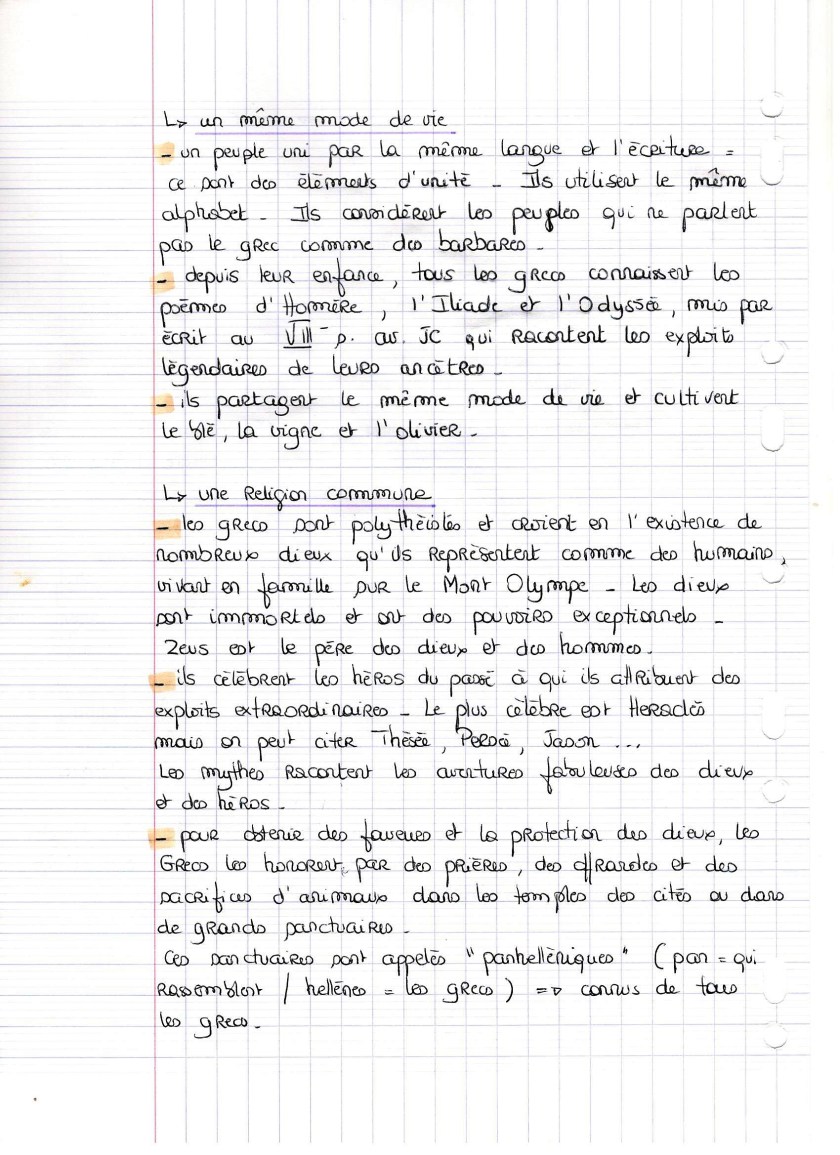 ↳ un même mode de vie
- un peuple uni par la même langue et l'écriture =
ce sont des éléments d'unité - Ils utilisent le même
alphabet - Ils considèrent les peuples qui ne parlent
pas le grec comme des barbares -
- depuis leur enfance, tous les grecs connaissent les
poèmes d'Homère, l'Iliade et l'Odyssée, mis par
écrit au VIII- s. av. JC qui racontent les exploits
légendaires de leurs ancêtres -
- ils partagent le même mode de vie et cultivent
le blé, la vigne et l'olivier -
↳ une Religion commune
- les grecs sont polythéistes et croient en l'existence de
nombreux dieux qu'ils représentent comme des humains,
vivant en famille sur le Mont Olympe - Les dieux
sont immortels et ont des pouvoirs exceptionnels -
Zeus est le père des dieux et des hommes.
- ils célèbrent les héros du passé à qui ils attribuent des
exploits extraordinaires - Le plus célèbre est Heraclès
mais on peut citer Thésée, Persée, Jason ...
Les mythes racontent les aventures fabuleuses des dieux
et des héros -
- pour obtenir des faveurs et la protection des dieux, les
Grecs les honorent par des prières, des offrandes et des
sacrifices d'animaux dans les temples des cités ou dans
de grands sanctuaires -
Ces sanctuaires sont appelés "panhelléniques" (pan = qui
rassemblent / hellènes = les grecs) => connus de tous
les grecs -